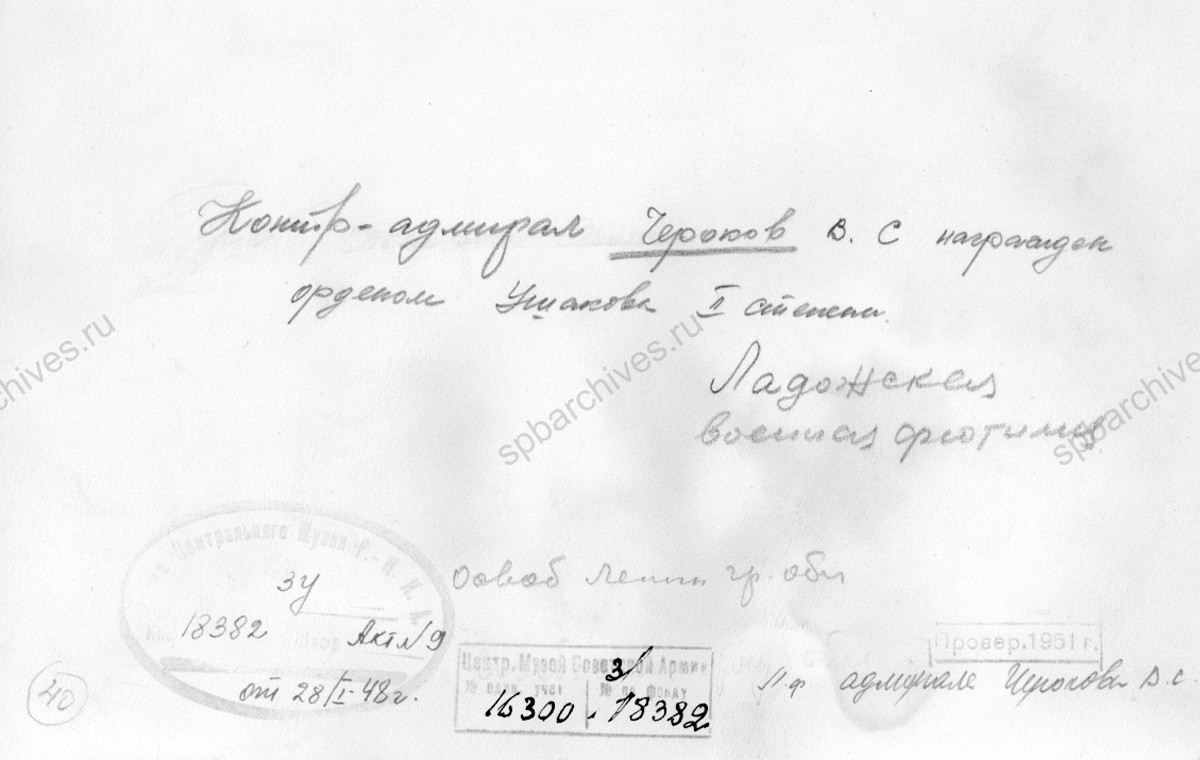 Контр-адмирал Чероков В. С награжден
орденом Ушакова II степени.
Ладожская
военная флотилия
spbarchives.ru
spbarchives.ru
spbarchives
Центрального Музея Р.-К.К.А.
ЗУ
18382
Акт №9
от 28/I-48 г.
40
освоб Ленингр. обл
Центр. Музей Советской Армии
№ един. учет № по фонду
3/
16300 18382
Провер. 1951 г.
адмирала Черокова В.С.